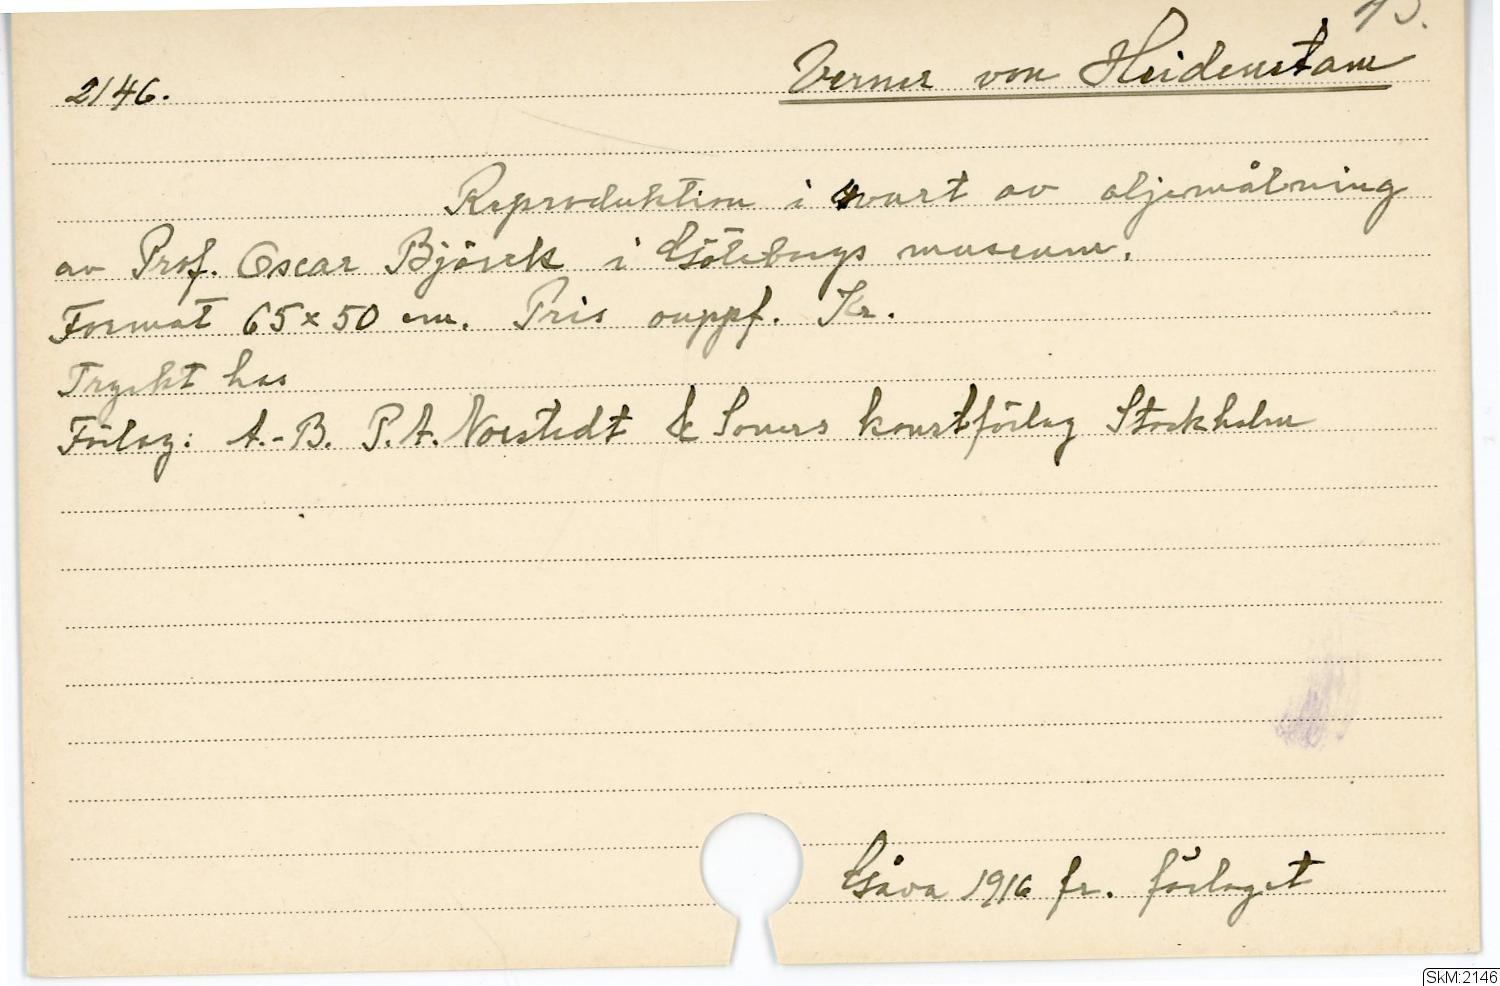 13.
2146.
Verner von Heidenstam
Reproduktion i svart av oljemålning
av Prof. Oscar Björck i Göteborgs museum.
Format 65 x 50 cm. Pris ouppf. Kr.
Tryckt hos
Förlag: A.-B. P.A. Norstedt & Soners konstförlag Stockholm
Gåva 1916 fr. förlaget
SkM:2146